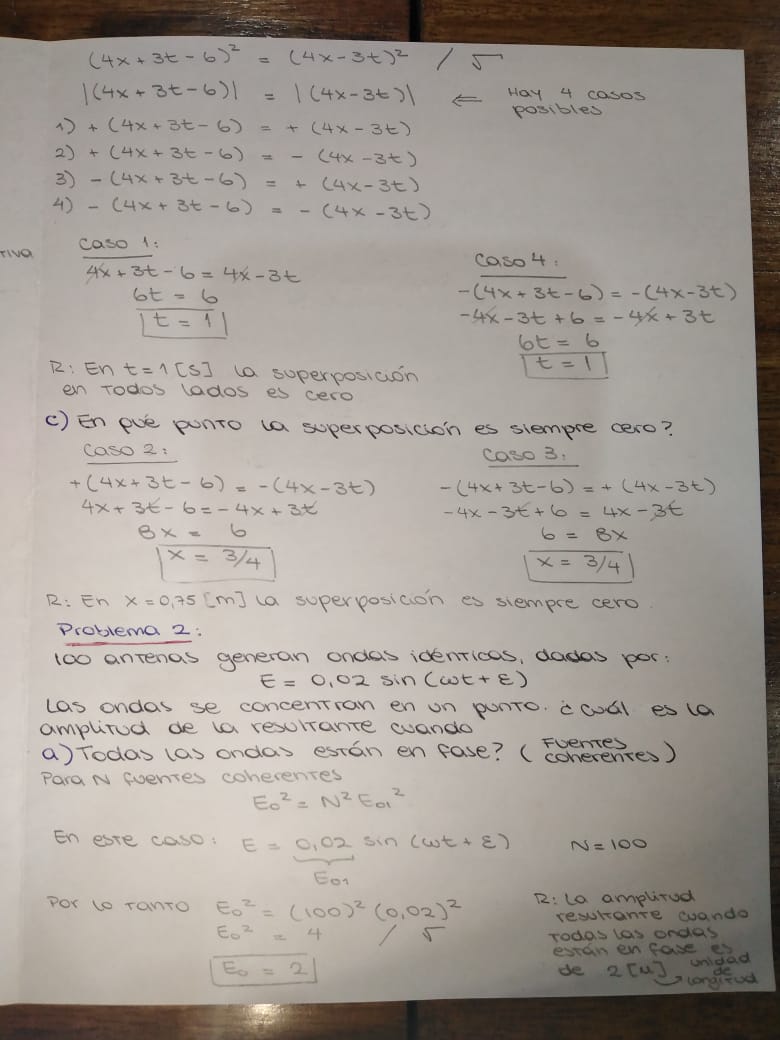 (4x + 3t - 6)² = (4x - 3t)² / √
|(4x + 3t - 6)| = |(4x - 3t)| ⇐ Hay 4 casos posibles
1) + (4x + 3t - 6) = + (4x - 3t)
2) + (4x + 3t - 6) = - (4x - 3t)
3) - (4x + 3t - 6) = + (4x - 3t)
4) - (4x + 3t - 6) = - (4x - 3t)
tiva
Caso 1:
4x + 3t - 6 = 4x - 3t
6t = 6
t = 1
Caso 4:
-(4x + 3t - 6) = -(4x - 3t)
-4x - 3t + 6 = -4x + 3t
6t = 6
t = 1
R: En t = 1 [s] la superposición
en todos lados es cero
c) En qué punto la superposición es siempre cero?
Caso 2:
+(4x + 3t - 6) = -(4x - 3t)
4x + 3t - 6 = -4x + 3t
8x = 6
x = 3/4
Caso 3:
-(4x + 3t - 6) = + (4x - 3t)
-4x - 3t + 6 = 4x - 3t
6 = 8x
x = 3/4
R: En x = 0,75 [m] la superposición es siempre cero.
Problema 2:
100 antenas generan ondas idénticas, dadas por:
E = 0,02 sin (ωt + ε)
Las ondas se concentran en un punto. ¿Cuál es la
amplitud de la resultante cuando
a) Todas las ondas están en fase? (Fuentes coherentes)
Para N fuentes coherentes
E₀² = N² E₀₁²
En este caso: E = 0,02 sin (ωt + ε) N = 100
E₀₁
Por lo tanto E₀² = (100)² (0,02)²
E₀² = 4 / √
E₀ = 2
R: La amplitud
resultante cuando
todas las ondas
están en fase es
de 2 [u] → unidad de longitud